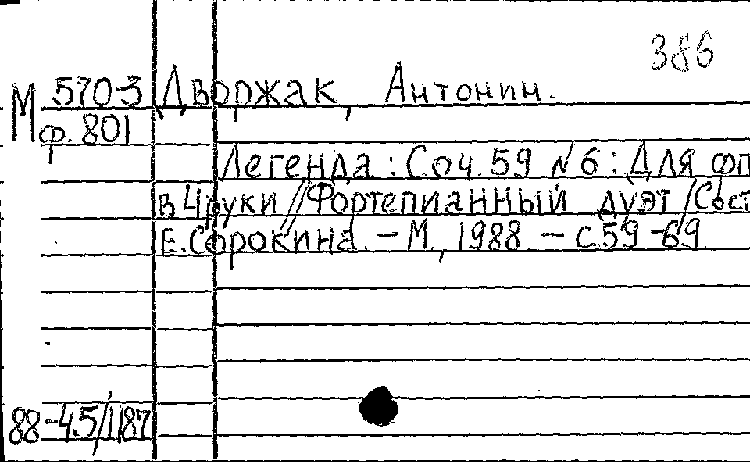 386
М 570-3 Дворжак, Антонин.
ф. 801
Легенда : Соч. 59 № 6 : Для фп
в 4 руки // Фортепианный дуэт / Сост
Е. Сорокина. – М., 1988 – с. 59-69
88-4.5/1187